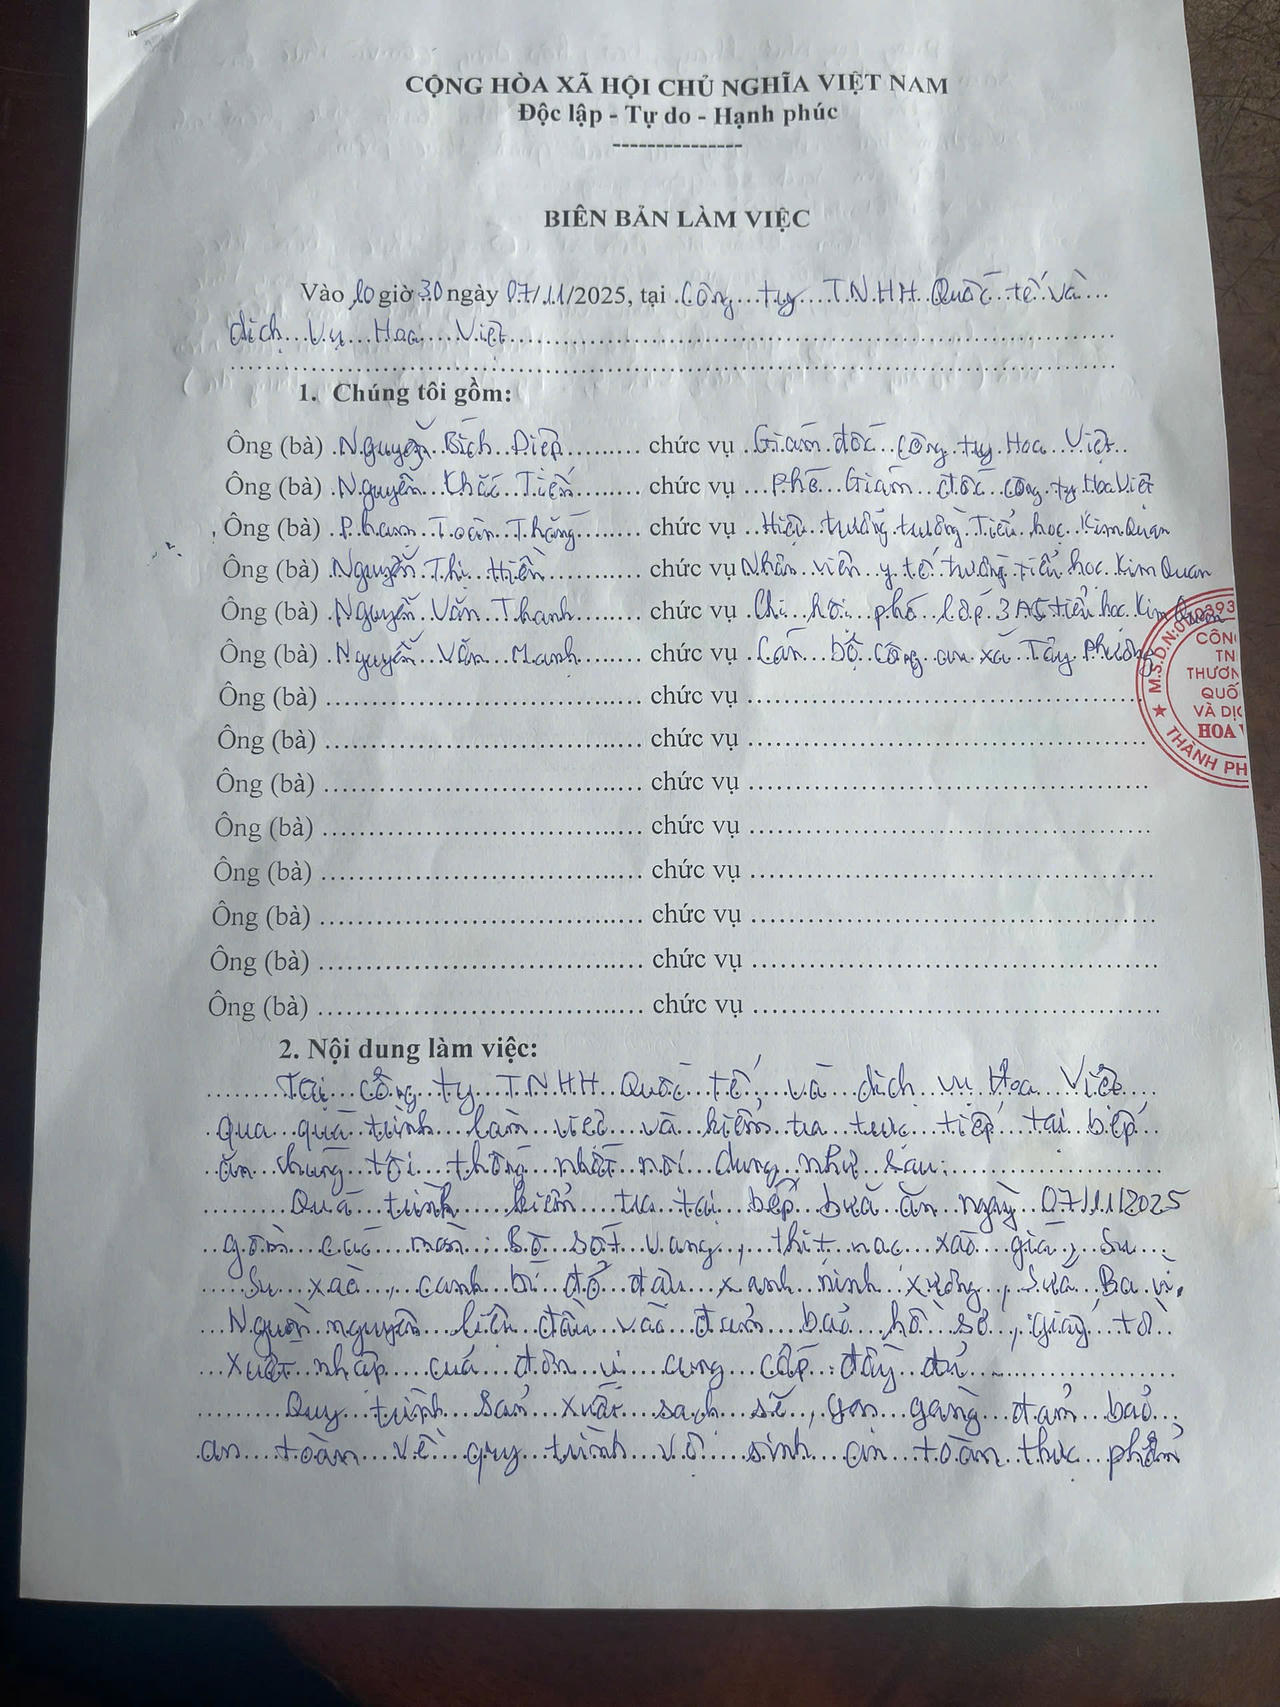 CỘNG HÒA XÃ HỘI CHỦ NGHĨA VIỆT NAM
Độc lập - Tự do - Hạnh phúc
---------------
BIÊN BẢN LÀM VIỆC
Vào 10 giờ 30 ngày 07/11/2025, tại Công ty TNHH Quốc tế và
dịch vụ Hoa Việt
1. Chúng tôi gồm:
Ông (bà) Nguyễn Bích Diệp chức vụ Giám đốc công ty Hoa Việt
Ông (bà) Nguyễn Khắc Tiến chức vụ Phó Giám đốc công ty Hoa Việt
Ông (bà) Phạm Toàn Thắng chức vụ Hiệu trưởng trường Tiểu học Kim Quan
Ông (bà) Nguyễn Thị Hiền chức vụ Nhân viên y tế trường tiểu học Kim Quan
Ông (bà) Nguyễn Văn Thanh chức vụ Chi hội phó lớp 3A5 tiểu học Kim Quan
Ông (bà) Nguyễn Văn Mạnh chức vụ Cán bộ công an xã Tây Phương
Ông (bà) chức vụ
Ông (bà) chức vụ
Ông (bà) chức vụ
Ông (bà) chức vụ
Ông (bà) chức vụ
Ông (bà) chức vụ
Ông (bà) chức vụ
Ông (bà) chức vụ
M.S.D.N:010393
CÔN
TN
THƯƠN
QUỐ
VÀ DỊC
HOA V
THÀNH PH
2. Nội dung làm việc:
Tại Công ty TNHH Quốc tế và dịch vụ Hoa Việt
qua quá trình làm việc và kiểm tra trực tiếp tại bếp
ăn chúng tôi thống nhất nội dung như sau:
Quá trình kiểm tra tại bếp bữa ăn ngày 07/11/2025
gồm các món: Bò sốt vang, thịt nạc xào giá, Su
Su xào, canh bí đỏ đậu xanh ninh xương, sữa Ba vì.
Nguồn nguyên liệu đầu vào đảm bảo hồ sơ, giấy tờ
xuất nhập của đơn vị cung cấp đầy đủ
Quy trình sản xuất sạch sẽ, gọn gàng đảm bảo
an toàn về quy trình vệ sinh an toàn thực phẩm